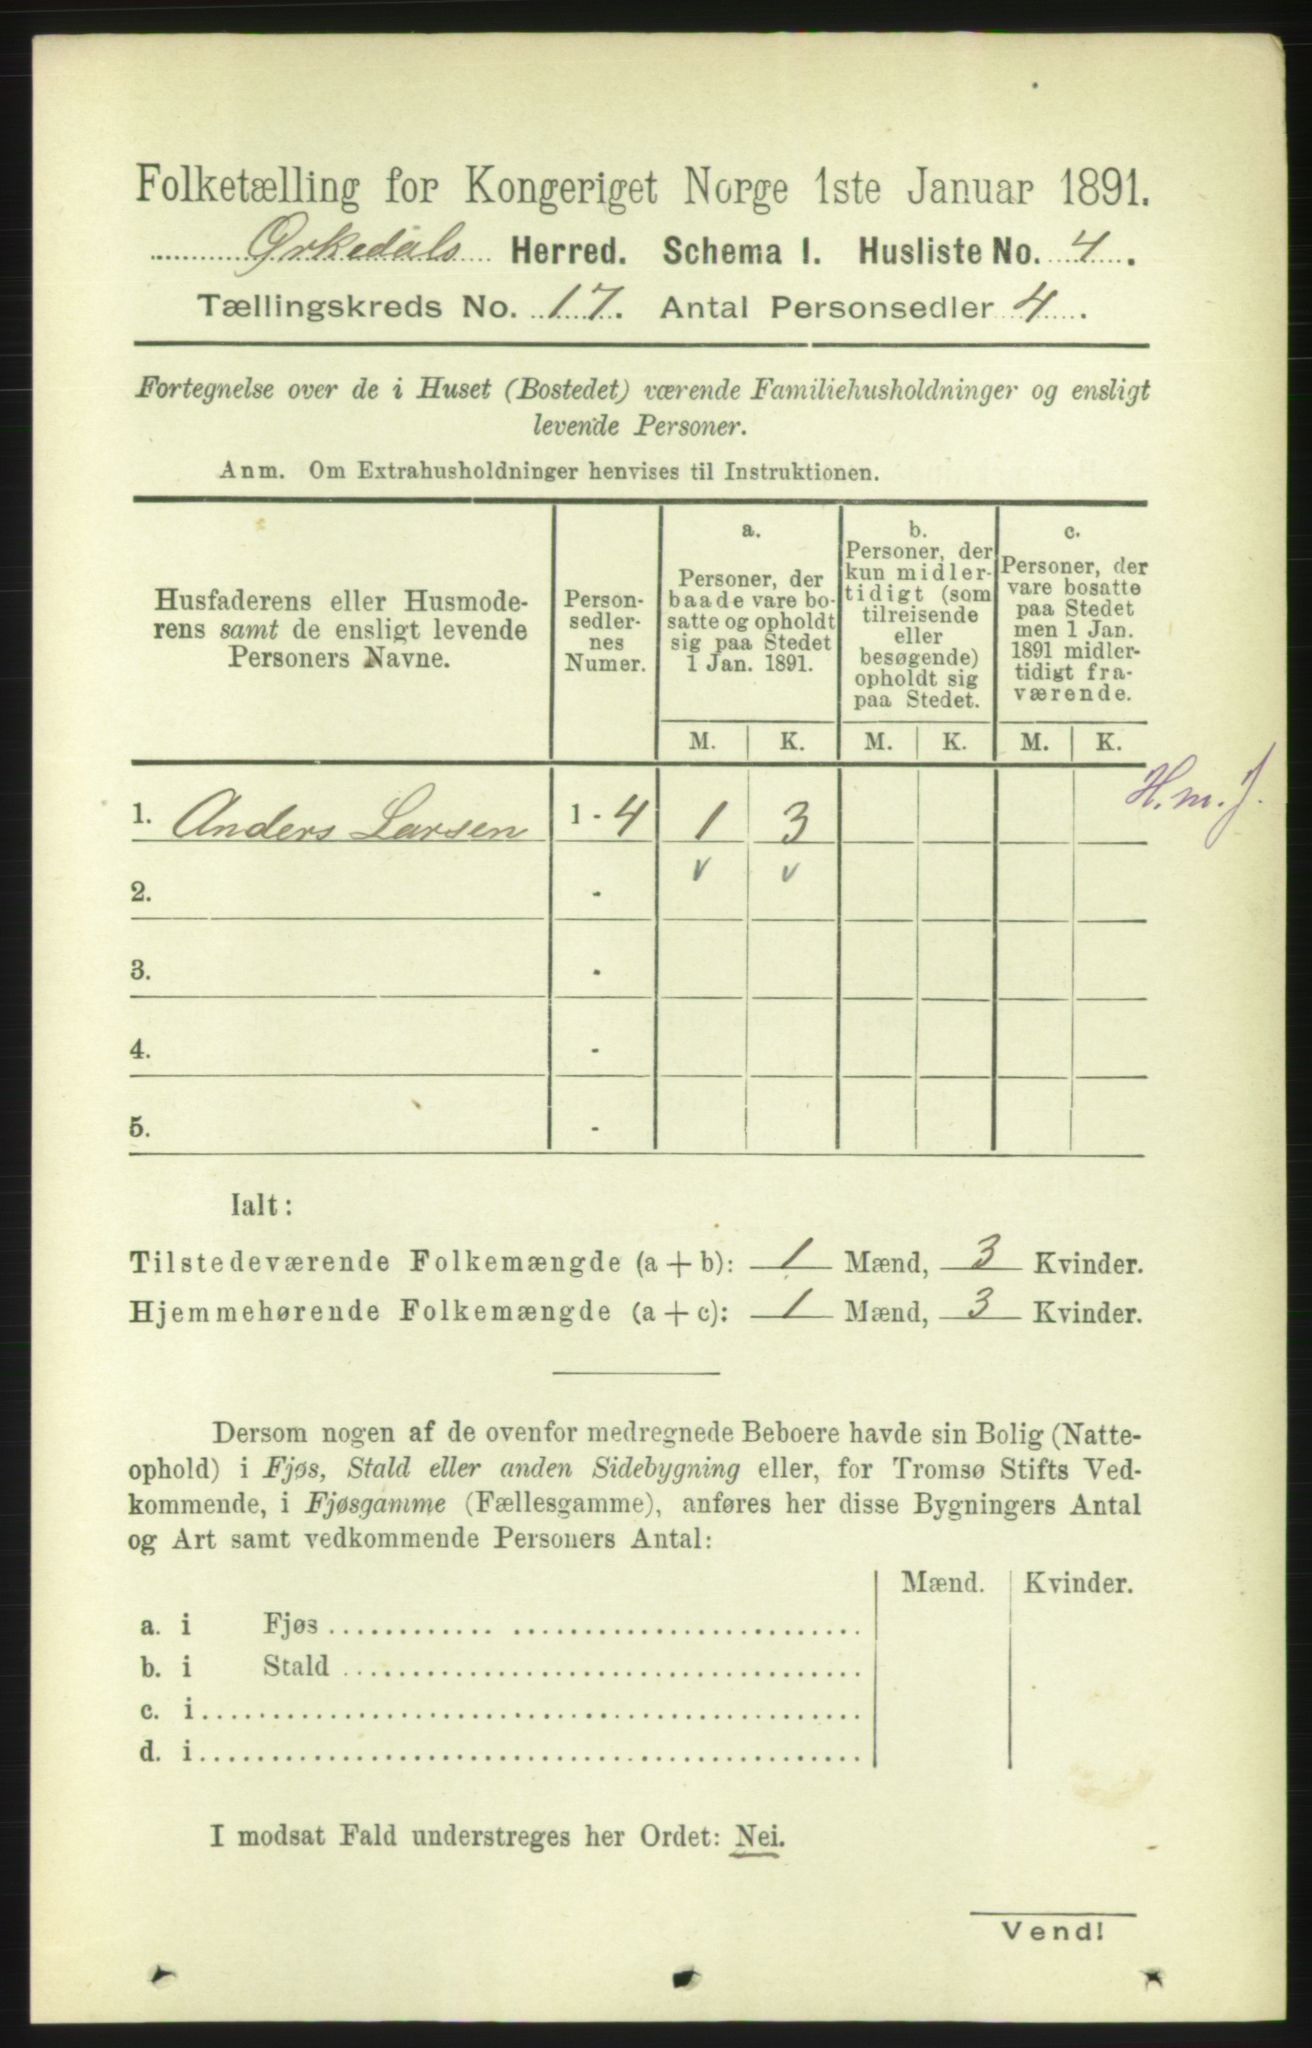 Folketælling for Kongeriget Norge 1ste Januar 1891.
Ørkedals Herred. Schema I. Husliste No. 4.
Tællingskreds No. 17. Antal Personsedler 4.
Fortegnelse over de i Huset (Bostedet) værende Familiehusholdninger og ensligt
levende Personer.
Anm. Om Extrahusholdninger henvises til Instruktionen.
Husfaderens eller Husmode-
rens samt de ensligt levende
Personers Navne.
Person-
sedler-
nes
Numer.
a.
Personer, der
baade vare bo-
satte og opholdt
sig paa Stedet
1 Jan. 1891.
b.
Personer, der
kun midler-
tidigt (som
tilreisende
eller
besøgende)
opholdt sig
paa Stedet.
c.
Personer, der
vare bosatte
paa Stedet
men 1 Jan.
1891 midler-
tidigt fra-
værende.
M. K. M. K. M. K.
H. m. J.
1. Anders Larsen 1 - 4 1 3
v v
2. -
3. -
4. -
5. -
Ialt:
Tilstedeværende Folkemængde (a + b): 1 Mænd, 3 Kvinder.
Hjemmehørende Folkemængde (a + c): 1 Mænd, 3 Kvinder.
Dersom nogen af de ovenfor medregnede Beboere havde sin Bolig (Natte-
ophold) i Fjøs, Stald eller anden Sidebygning eller, for Tromsø Stifts Ved-
kommende, i Fjøsgamme (Fællesgamme), anføres her disse Bygningers Antal
og Art samt vedkommende Personers Antal:
Mænd. Kvinder.
a. i Fjøs
b. i Stald
c. i
d. i
I modsat Fald understreges her Ordet: Nei.
Vend!